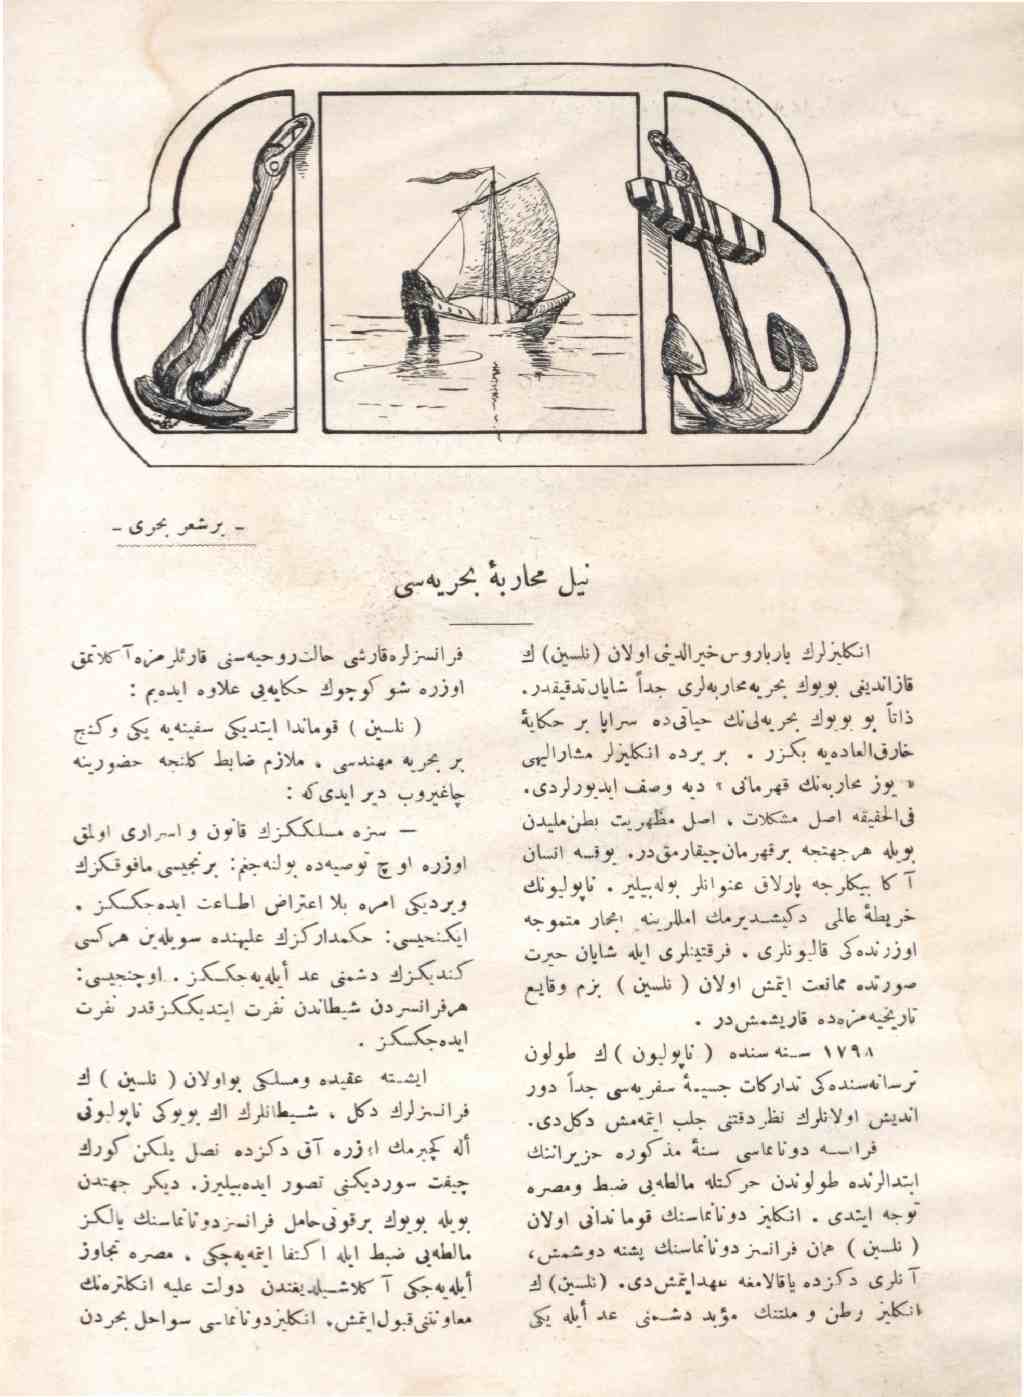 - بر شعر بحری -
نیل محاربهٔ بحریه‌سی
انکلیزلرك بارباروس خیرالدینی اولان (نلسین) ك
قازاندیغی بویوك بحریه محاربه‌لری جداً شایان تدقیقدر.
ذاتاً بو بویوك بحریه‌لی‌نك حیاتی‌ده سراپا بر حکایهٔ
خارق‌العاده‌یه بکزر . بر یرده انکلیزلر مشارالیهی
« یوز محاربه‌نك قهرمانی » دیه وصف ایدیورلردی.
فی‌الحقیقه اصل مشکلات ، اصل مظهریت بطن ملیدن
بویله هر جهتجه بر قهرمان چیقارمق‌در. یوقسه انسان
آ کا بیکلرجه پارلاق عنوانلر بوله‌بیلیر . ناپولیونك
خریطهٔ عالمی دکیشدیرمك امللرینه ابحار متموجه
اوزرنده‌کی قالیونلری ، فرقتینلری ایله شایان حیرت
صورتده ممانعت ایتمش اولان ( نلسین ) بزم وقایع
تاریخیه‌مزده‌ده قاریشمش‌در .
١٧٩٨ سنه سنده ( ناپولیون ) ك طولون
ترسانه‌سنده‌کی تدارکات جسیمهٔ سفریه‌سی جداً دور
اندیش اولانلرك نظر دقتنی جلب ایتمه‌مش دکل‌دی.
فرانسه دونانماسی سنهٔ مذکوره حزیراننك
ابتدالرنده طولوندن حرکتله مالطه‌یی ضبط ومصره
توجه ایتدی . انکلیز دونانماسنك قوماندانی اولان
( نلسین ) همان فرانسز دونانماسنك پشنه دوشمش،
آ نلری دکزده یاقالامغه عهد ایتمش‌دی. (نلسین) ك
انکلیز وطن و ملتنك مؤبد دشمنی عد أیله یکی
فرانسزلره قارشی حالت روحیه‌سنی قارئلرمزه آ کلاتمق
اوزره شو کوچوك حکایه‌یی علاوه ایده‌یم :
( نلسین ) قوماندا ایتدیکی سفینه‌یه یکی و کنج
بر بحریه مهندسی ، ملازم ضابط کلنجه حضورینه
چاغیروب دیر ایدی که :
— سزه مسلککزك قانون و اسراری اولمق
اوزره او چ توصیه‌ده بولنه‌جغم: برنجیسی مافوقکزك
ویردیکی امره بلا اعتراض اطاعت ایده‌جکسکز .
ایکنجیسی: حکمدارکزك علیهنده سویله‌ین هرکسی
کندیکزك دشمنی عد أیله‌یه‌جکسکز . اوچنجیسی:
هر فرانسزدن شیطاندن نفرت ایتدیککز قدر نفرت
ایده‌جکسکز .
ایشته عقیده ومسلکی بو اولان ( نلسین ) ك
فرانسزلرك دکل ، شیطانلرك اك بویوکی ناپولیونی
أله کچیرمك اوزره آق دکزده نصل یلکن کورك
چیفت سوردیکنی تصور ایده‌بیلیرز. دیکر جهتدن
بویله بویوك بر قوتی حامل فرانسز دونانماسنك یالکز
مالطه‌یی ضبط ایله اکتفا ایتمه‌یه‌جکی ، مصره تجاوز
أیله‌یه‌جکی آ کلاشیلدیغندن دولت علیه انکلتره‌نك
معاونتنی قبول ایتمش، انکلیز دونانماسی سواحل بحردن